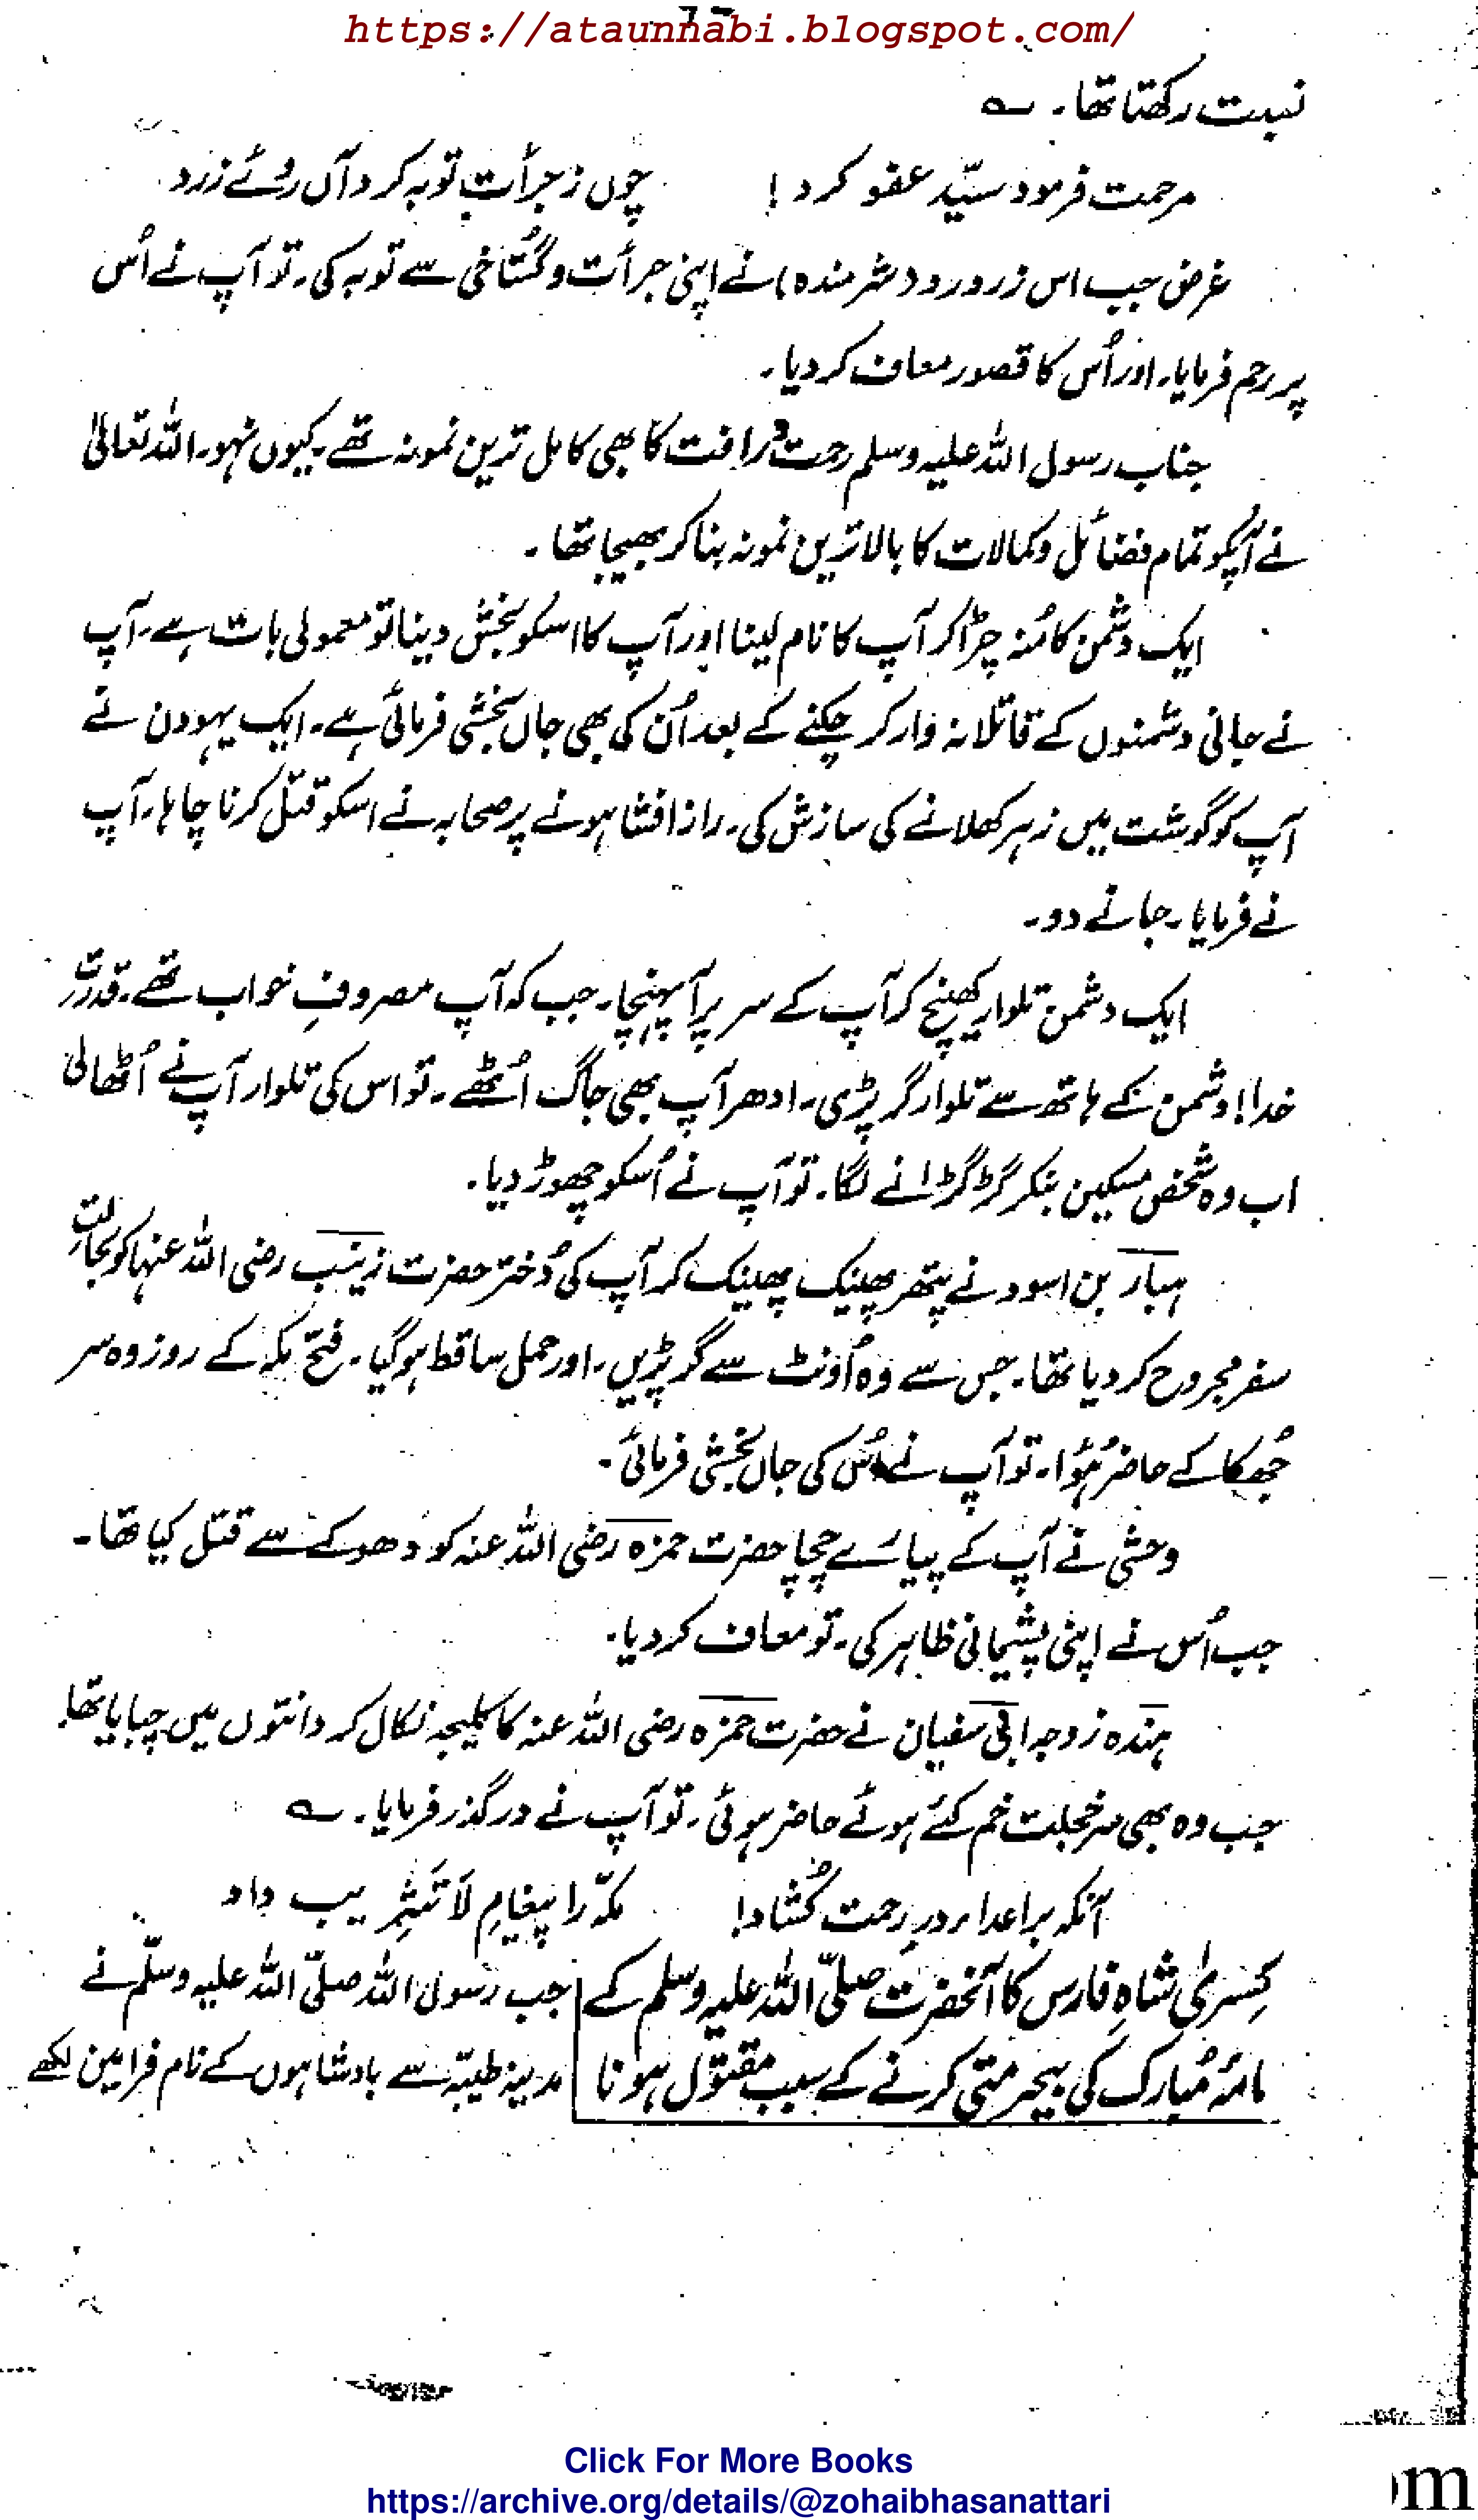 https://ataunnabi.blogspot.com/
نسبت رکھتا تھا۔ ؎
مرحمت فرمود سیّد عفو کرد! چوں ز جرأت توبہ کرد آں روئے زرد
غرض جب اس زرد رو (شرمندہ) نے اپنی جرأت و گستاخی سے توبہ کی۔ تو آپ نے اُس
پر رحم فرمایا۔ اور اُس کا قصور معاف کر دیا۔
جناب رسول اللہ علیہ وسلم رحمت و رافت کا بھی کامل ترین نمونہ تھے۔ کیوں نہو۔ اللہ تعالیٰ
نے آپکو تمام فضائل و کمالات کا بالا ترین نمونہ بنا کر بھیجا تھا۔
ایک دشمن کا مُنہ چڑا کر آپ کا نام لینا اور آپ کا اسکو بخش دینا تو معمولی بات ہے۔ آپ
نے جانی دشمنوں کے قاتلانہ وار کر چکنے کے بعد اُن کی بھی جاں بخشی فرمائی ہے۔ ایک یہودن نے
آپ کو گوشت میں زہر کھلانے کی سازش کی۔ راز افشا ہونے پر صحابہ نے اسکو قتل کرنا چاہا۔ آپ
نے فرمایا۔ جانے دو۔
ایک دشمن تلوار کھینچ کر آپ کے سر پر آ پہنچا۔ جب کہ آپ مصروفِ خواب تھے۔ قدرتِ
خدا! دشمن کے ہاتھ سے تلوار گر پڑی۔ ادھر آپ بھی جاگ اُٹھے۔ تو اس کی تلوار آپ نے اُٹھا لی
اب وہ شخص مسکین بنکر گڑگڑانے لگا۔ تو آپ نے اُسکو چھوڑ دیا۔
ہبار بن اسود نے پتھر پھینک پھینک کر آپ کی دُختر حضرت زینب رضی اللہ عنہا کو بحالتِ
سفر مجروح کر دیا تھا۔ جس سے وہ اُونٹ سے گر پڑیں۔ اور حمل ساقط ہو گیا۔ فتح مکہ کے روز وہ سر
جُھکا کے حاضر ہُوا۔ تو آپ نے اُس کی جاں بخشی فرمائی۔
وحشی نے آپ کے پیارے چچا حضرت حمزہ رضی اللہ عنہ کو دھوکے سے قتل کیا تھا۔
جب اُس نے اپنی پشیمانی ظاہر کی۔ تو معاف کر دیا۔
ہندہ زوجہ ابی سفیان نے حضرت حمزہ رضی اللہ عنہ کا کلیجہ نکال کر دانتوں میں چبایا تھا۔
جب وہ بھی سر خجلت خم کئے ہوئے حاضر ہوئی۔ تو آپ نے درگذر فرمایا۔ ؎
آنکہ بر اعداء در رحمت کُشاد! مکہّ را پیغامِ لَا تَثْرِیب داد
کِسریٰ شاہِ فارس کا آنحضرت صلّی اللہ علیہ وسلم کے
نامۂ مُبارک کی بیحرمتی کرنے کے سبب مقتول ہونا
جب رسول اللہ صلّی اللہ علیہ وسلّم نے
مدینہ طیبّہ سے بادشاہوں کے نام فرامین لکھے
Click For More Books
https://archive.org/details/@zohaibhasanattari